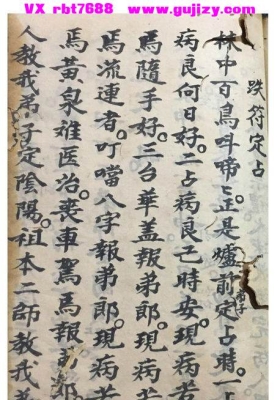 VX rbt7688 www.gujizy.com
跌符定占
林中百鳥叫啼〻正是爐前定占時一占
病良何日好二占病良己時安現病苦
馬隨手好三台華盖報弟郎現病苦
馬流連者叮噹八字報弟郎現病苦
馬黃泉难医治丧車駕馬報弟郎
人教我弟子定陰陽祖本二師教我為